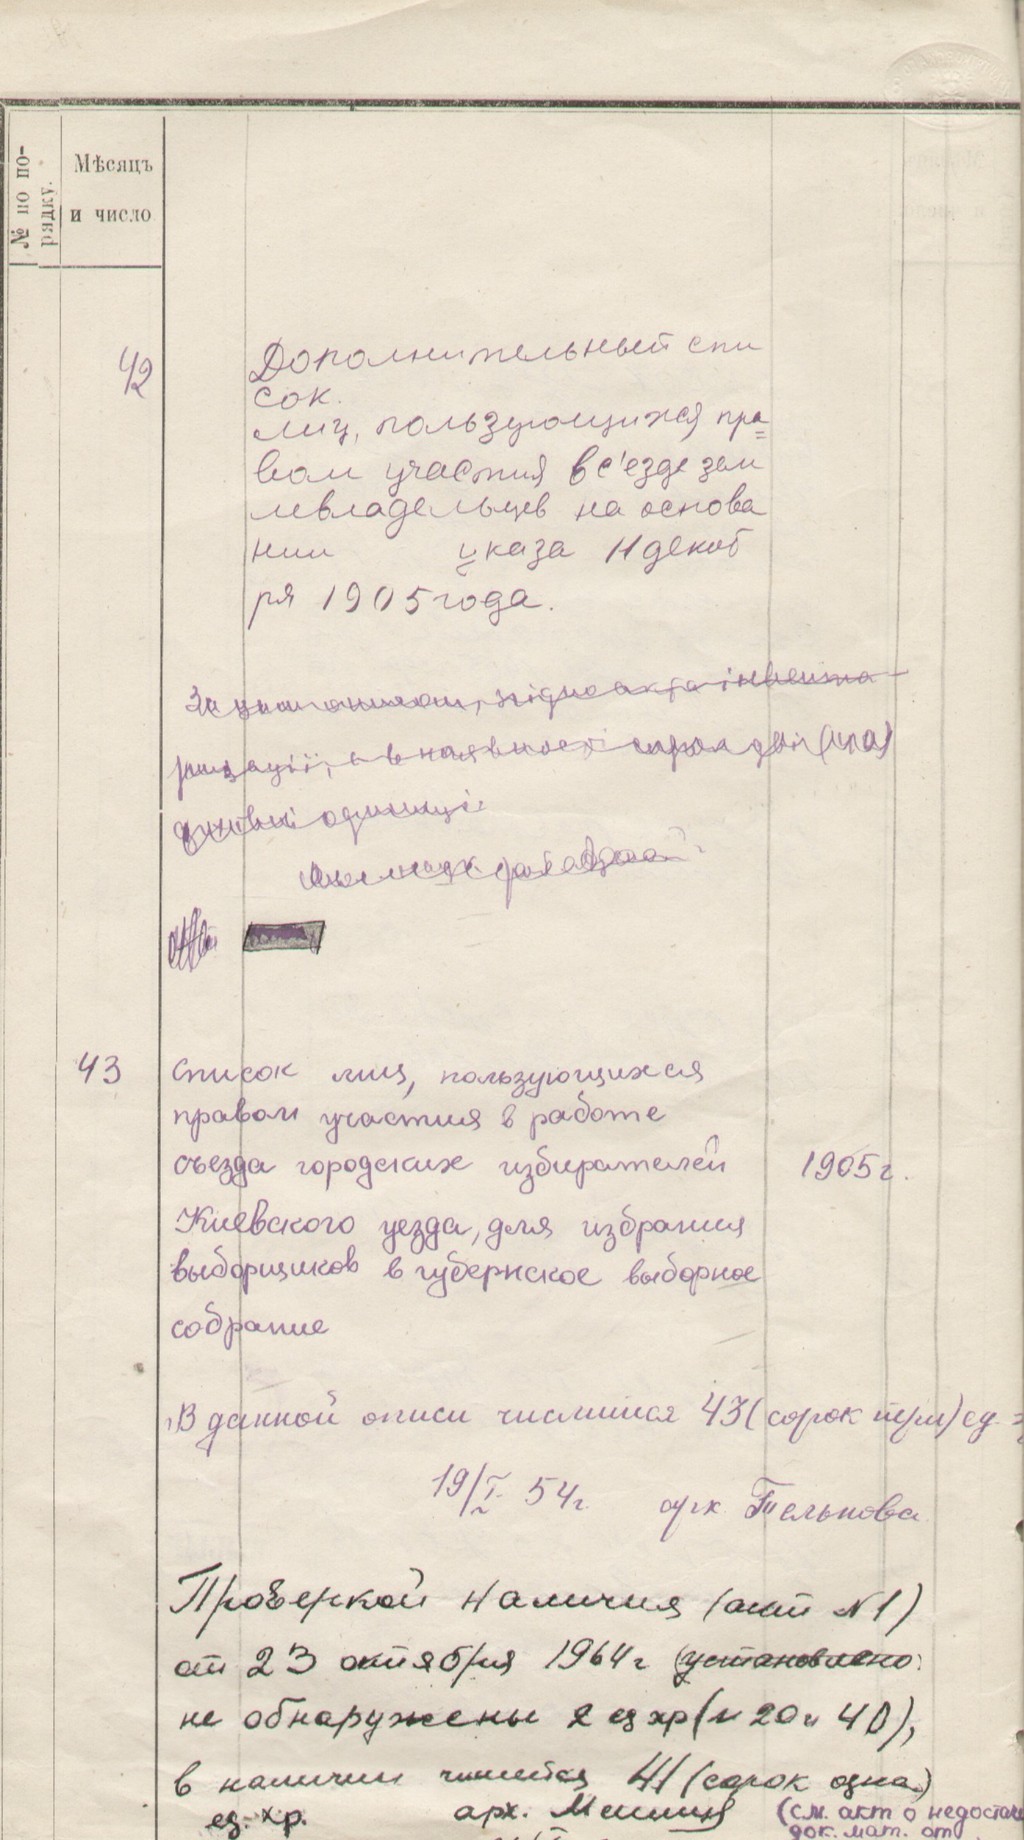 № по по-
рядку.
Мѣсяцъ
и число
42
Дополнительный спи
сок.
лиц, пользующихся пра=
вом участия в с'езде зем
левладельцев на основа
нии указа 11 декаб
ря 1905 года.
згідно акта інвента
ризації, в наявності сорок дві
одиниці
43
Список лиц, пользующихся
правом участия в работе
съезда городских избирателей
1905 г.
Киевского уезда, для избрания
выборщиков в губернское выборное
собрание
В данной описи числится 43 (сорок три) ед.
19/I 54 г. арх. Телькова
Проверкой наличия (акт №1)
от 23 октября 1964 г (установлено
не обнаружены 2 ед хр (№ 20 и 40),
в наличии числится 41 (сорок одна)
ед. хр. арх.
(см. акт о недостач
док. мат. от